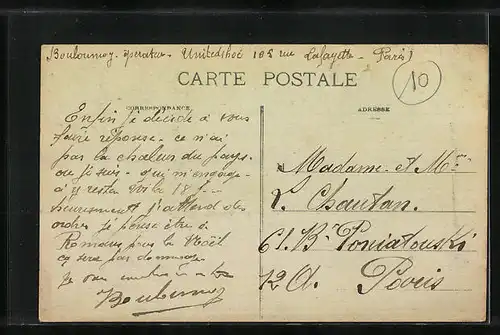 Bouloumoy - operateur - Unitedshoe 105 rue Lafayette - Paris)
CARTE POSTALE
10
CORRESPONDANCE
ADRESSE
Enfin je décide à vous
faire réponse - ce n'ai
pas la chaleur du pays
ou je suis - qui m'engage
à y rester voila 18
heureusement j'attend des
ordres je pense être à
Romans pres la Noël
ça sera pas dommage
Je vous
Madame et Mr
L. Chautan.
61. Bd Poniatouski
12 A. Paris